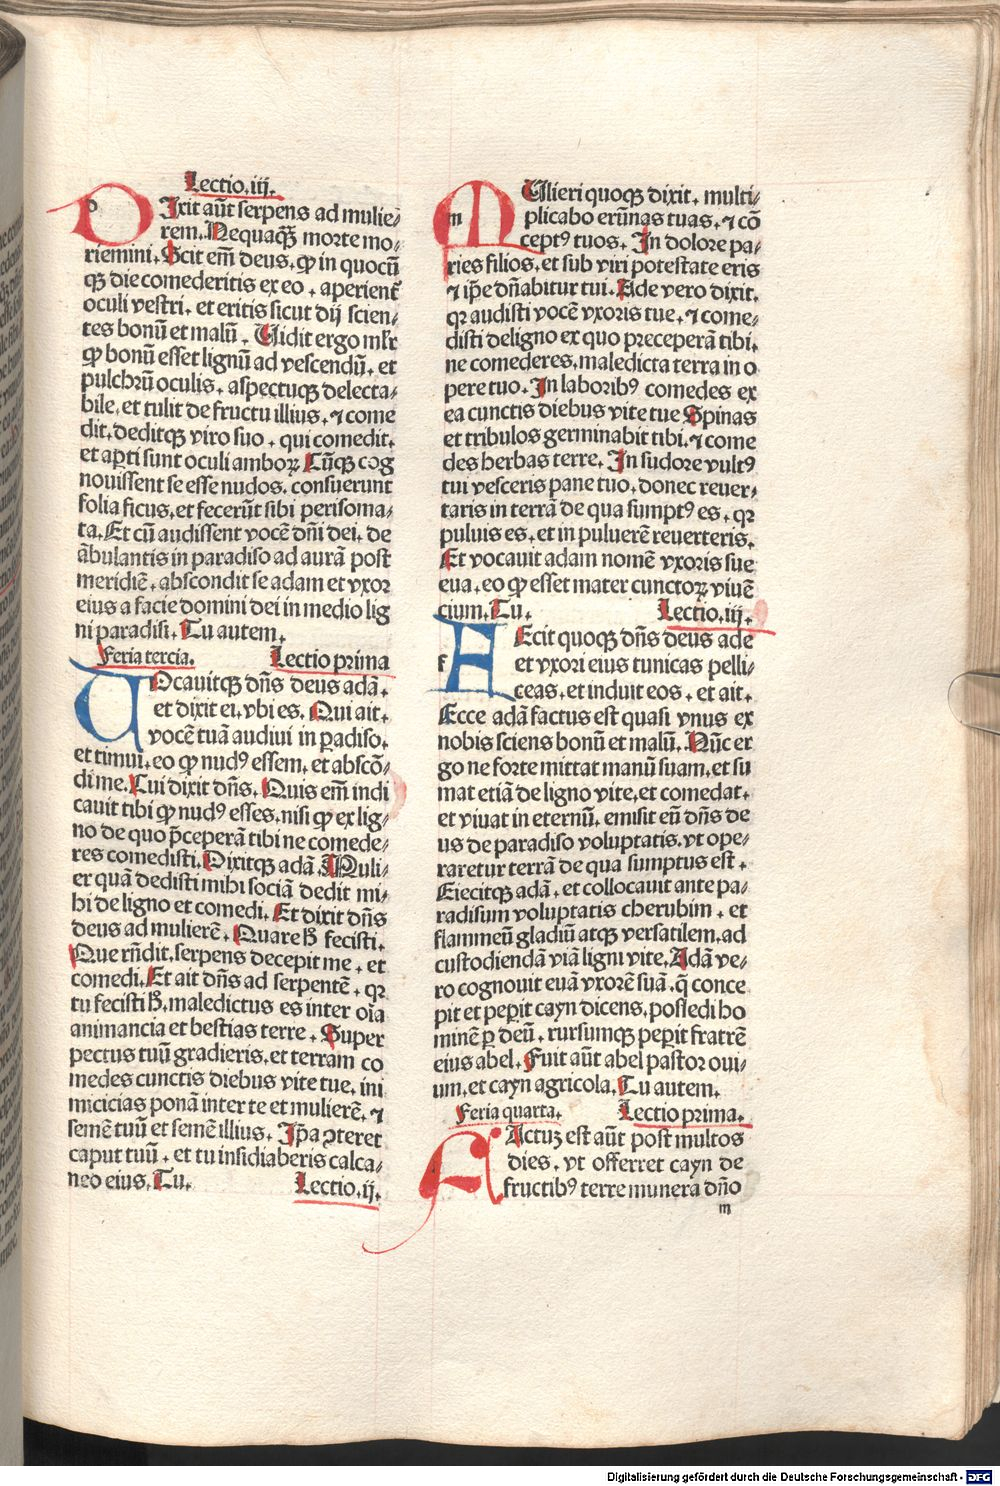 Lectio.iij.
DIxit aūt serpens ad mulie/
rem. Nequaqȝ morte mo/
riemini. Scit em̄ deus. ꝙ in quocū
qȝ die comederitis ex eo. aperient᷑
oculi vestri. et eritis sicut dij scien/
tes bonū et malū. Vidit ergo ml̓r
ꝙ bonū esset lignū ad vescendū. et
pulchrū oculis. aspectuqȝ delecta/
bile. et tulit de fructu illius. ⁊ come
dit. deditqȝ viro suo. qui comedit.
et aꝑti sunt oculi amboꝝ Cūqȝ cog
nouissent se esse nudos. consuerunt
folia ficus. et fecerūt sibi perisoma/
ta. Et cū audissent vocē dn̄i dei. de
ābulantis in paradiso ad aurā post
meridiē. abscondit se adam et vxor
eius a facie domini dei in medio lig
ni paradisi. Tu autem.
Feria tercia. Lectio prima
VOcauitqȝ dn̄s deus adā.
et dixit ei. vbi es. Qui ait.
vocē tuā audiui in ꝑadiso.
et timui. eo ꝙ nudꝰ essem. et abscō/
di me. Cui dixit dn̄s. Quis em̄ indi
cauit tibi ꝙ nudꝰ esses. nisi ꝙ ex lig/
no de quo p̄ceperā tibi ne comede/
res comedisti. Dixitqȝ adā. Muli/
er quā dedisti mihi sociā dedit mi/
hi de ligno et comedi. Et dixit dn̄s
deus ad mulierē. Quare h̄ fecisti.
Que rn̄dit. serpens decepit me. et
comedi. Et ait dn̄s ad serpentē. qꝛ
tu fecisti h̄. maledictus es inter oīa
animancia et bestias terre. Super
pectus tuū gradieris. et terram co
medes cunctis diebus vite tue. ini
micicias ponā inter te et mulierē. ⁊
semē tuū et semē illius. Ip̄a ꝯteret
caput tuū. et tu insidiaberis calca/
neo eius. Tu. Lectio.ij.
MUlieri quoqȝ dixit. multi/
plicabo erūnas tuas. ⁊ cō
ceptꝰ tuos. In dolore pa/
ries filios. et sub viri potestate eris
⁊ ip̄e dn̄abitur tui. Ade vero dixit.
qꝛ audisti vocē vxoris tue. ⁊ come/
disti de ligno ex quo preceperā tibi.
ne comederes. maledicta terra in o
pere tuo. In laboribꝰ comedes ex
ea cunctis diebus vite tue Spinas
et tribulos germinabit tibi. ⁊ come
des herbas terre. In sudore vultꝰ
tui vesceris pane tuo. donec reuer/
taris in terrā de qua sumptꝰ es. qꝛ
puluis es. et in puluerē reuerteris.
Et vocauit adam nomē vxoris sue
eua. eo ꝙ esset mater cunctoꝝ viuē
cium. Tu. Lectio.iij.
FEcit quoqȝ dn̄s deus ade
et vxori eius tunicas pelli/
ceas. et induit eos. et ait.
Ecce adā factus est quasi vnus ex
nobis sciens bonū et malū. Nūc er
go ne forte mittat manū suam. et su
mat etiā de ligno vite. et comedat.
et viuat in eternū. emisit eū dn̄s de
us de paradiso voluptatis. vt ope/
raretur terrā de qua sumptus est.
Eiecitqȝ adā. et collocauit ante pa/
radisum voluptatis cherubim. et
flammeū gladiū atqȝ versatilem. ad
custodiendā viā ligni vite. Adā ve/
ro cognouit euā vxorē suā. q̄ conce
pit et peꝑit cayn dicens. possedi ho
minē ꝑ deū. rursumqȝ peꝑit fratrē
eius abel. Fuit aūt abel pastor oui/
um. et cayn agricola. Tu autem.
Feria quarta. Lectio prima.
FActuȝ est aūt post multos
dies. vt offerret cayn de
fructibꝰ terre munera dn̄o
m
Digitalisierung gefördert durch die Deutsche Forschungsgemeinschaft - DFG